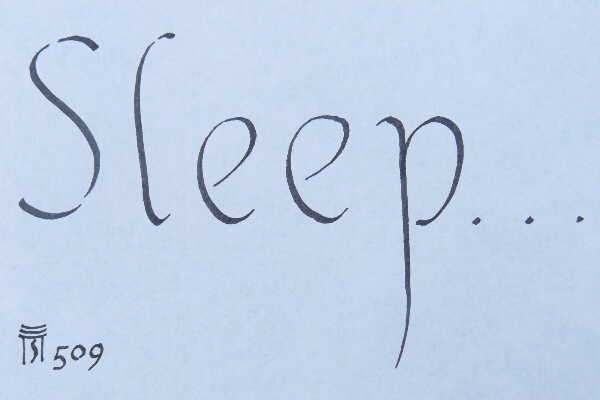 Sleep...
509